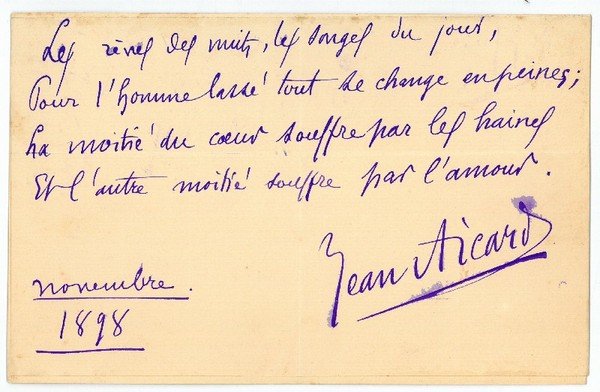 Les rêves des nuits, les songes du jour,
Pour l'homme lassé tout se change en peines;
La moitié du cœur souffre par les haines
Et l'autre moitié souffre par l'amour.
Jean Aicard
novembre.
1898